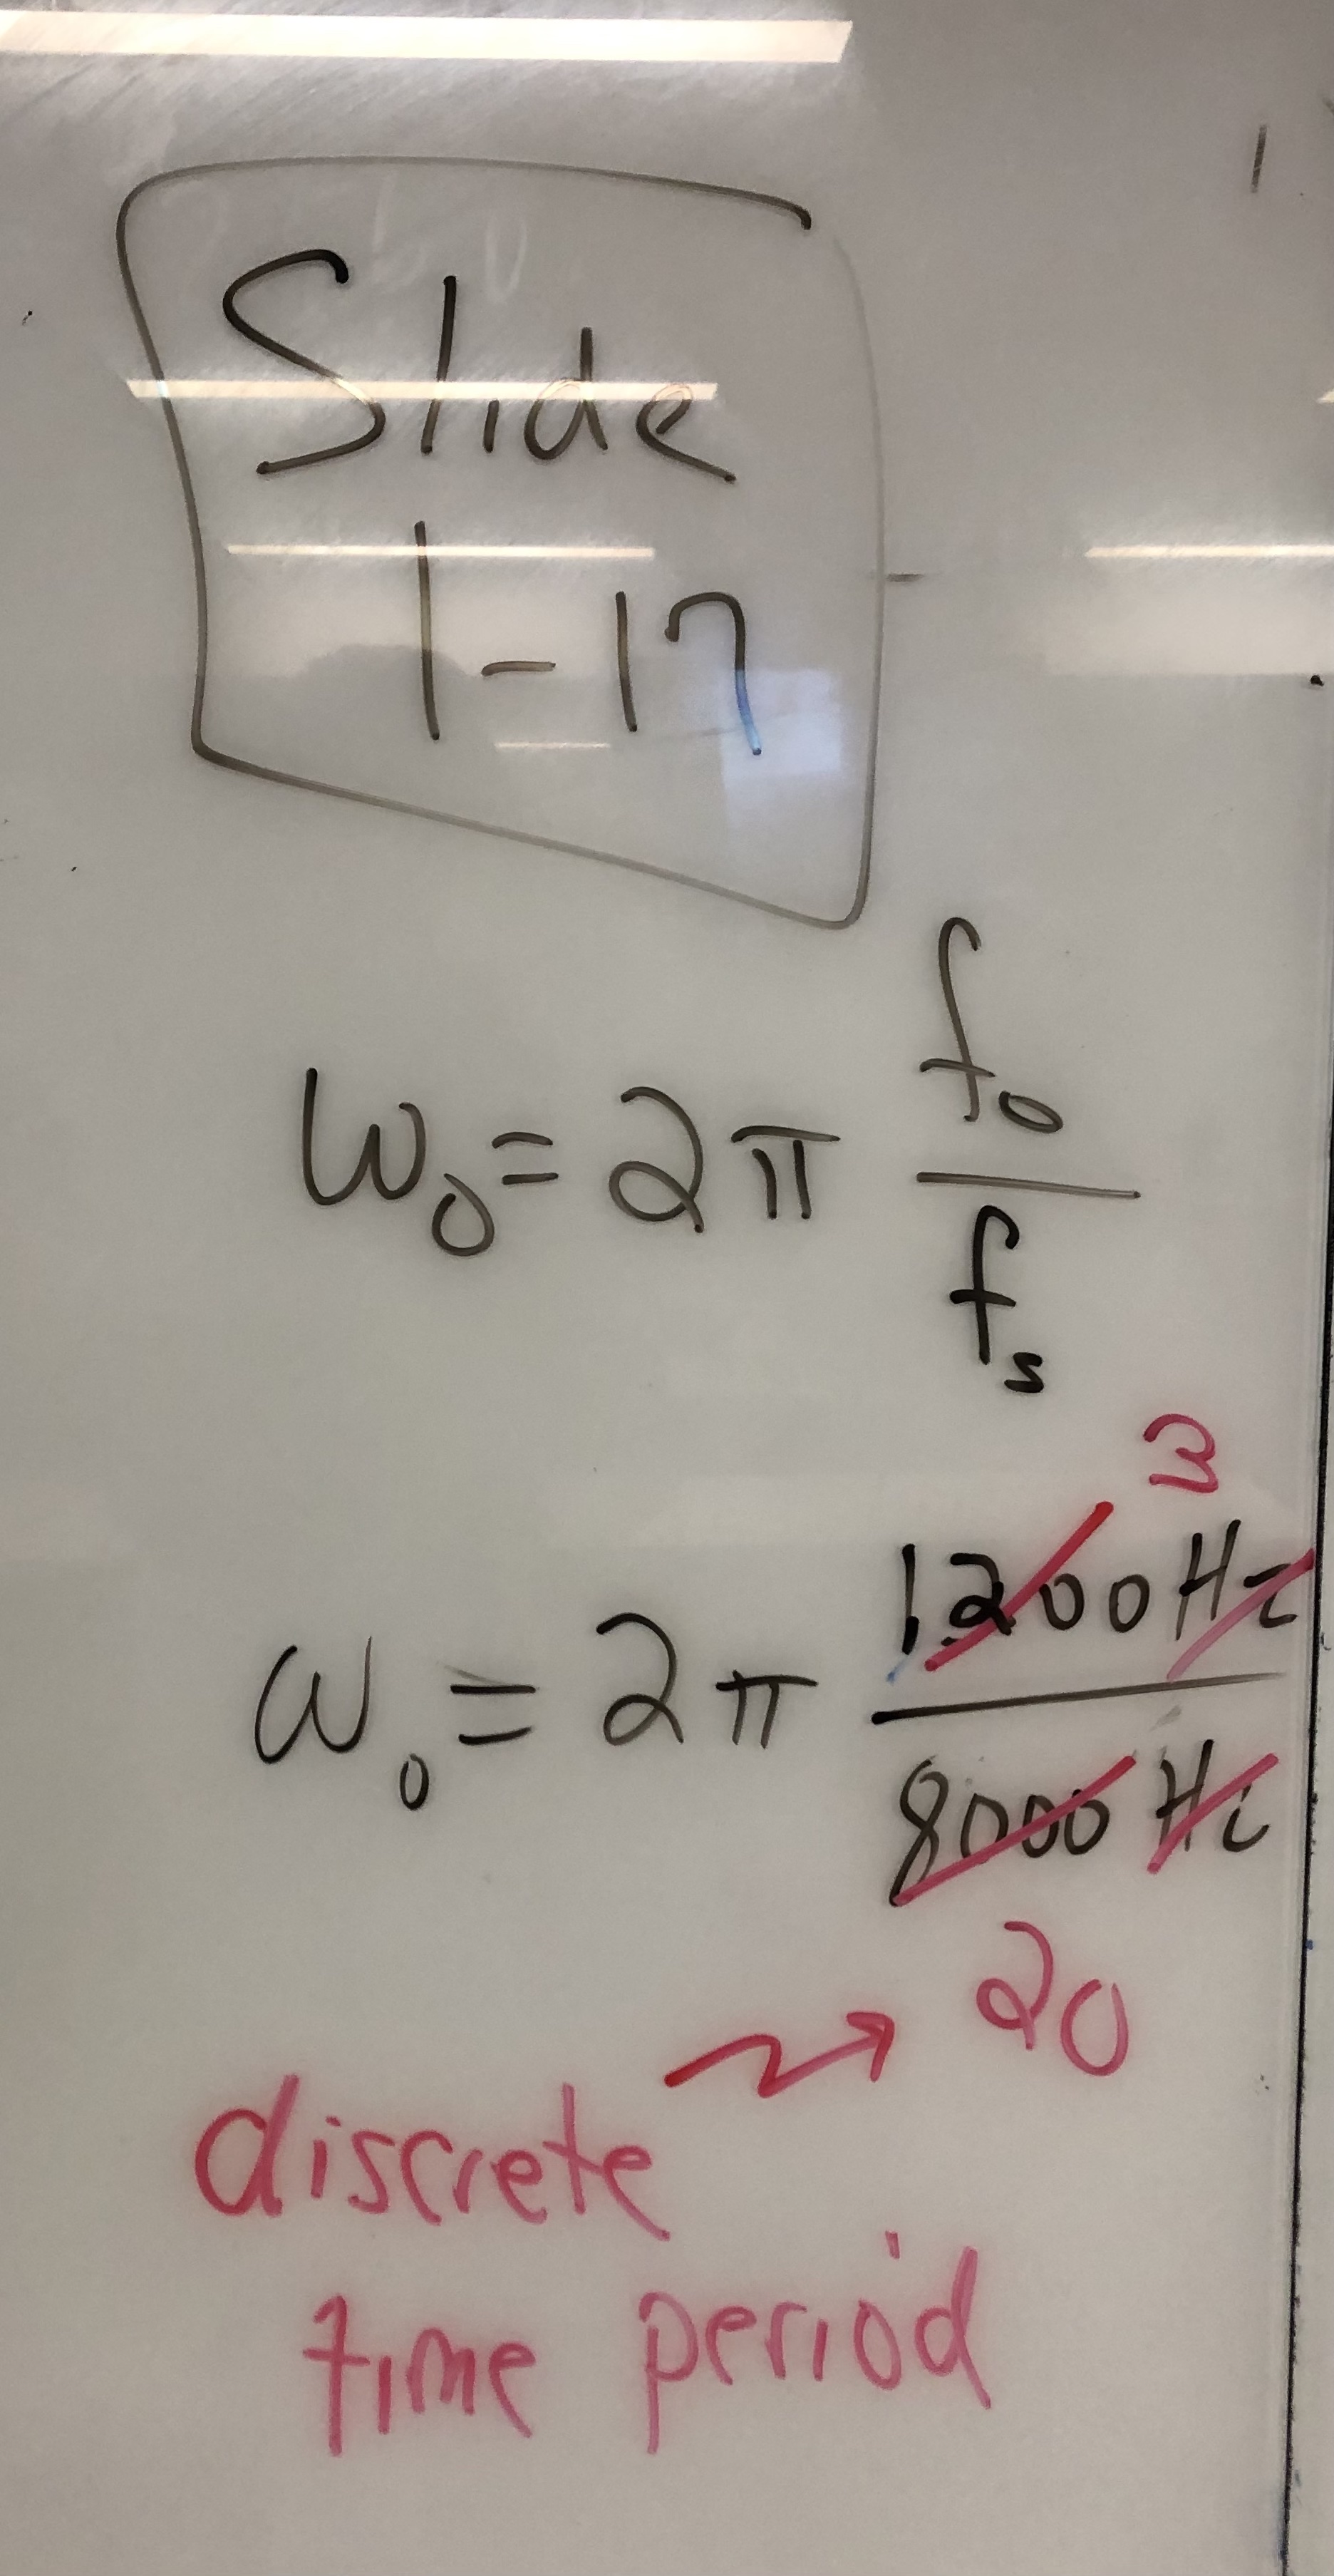 Slide
1-17
ω₀ = 2π f₀/fₛ
3
ω₀ = 2π 1200 Hz/8000 Hz
20
discrete
time period